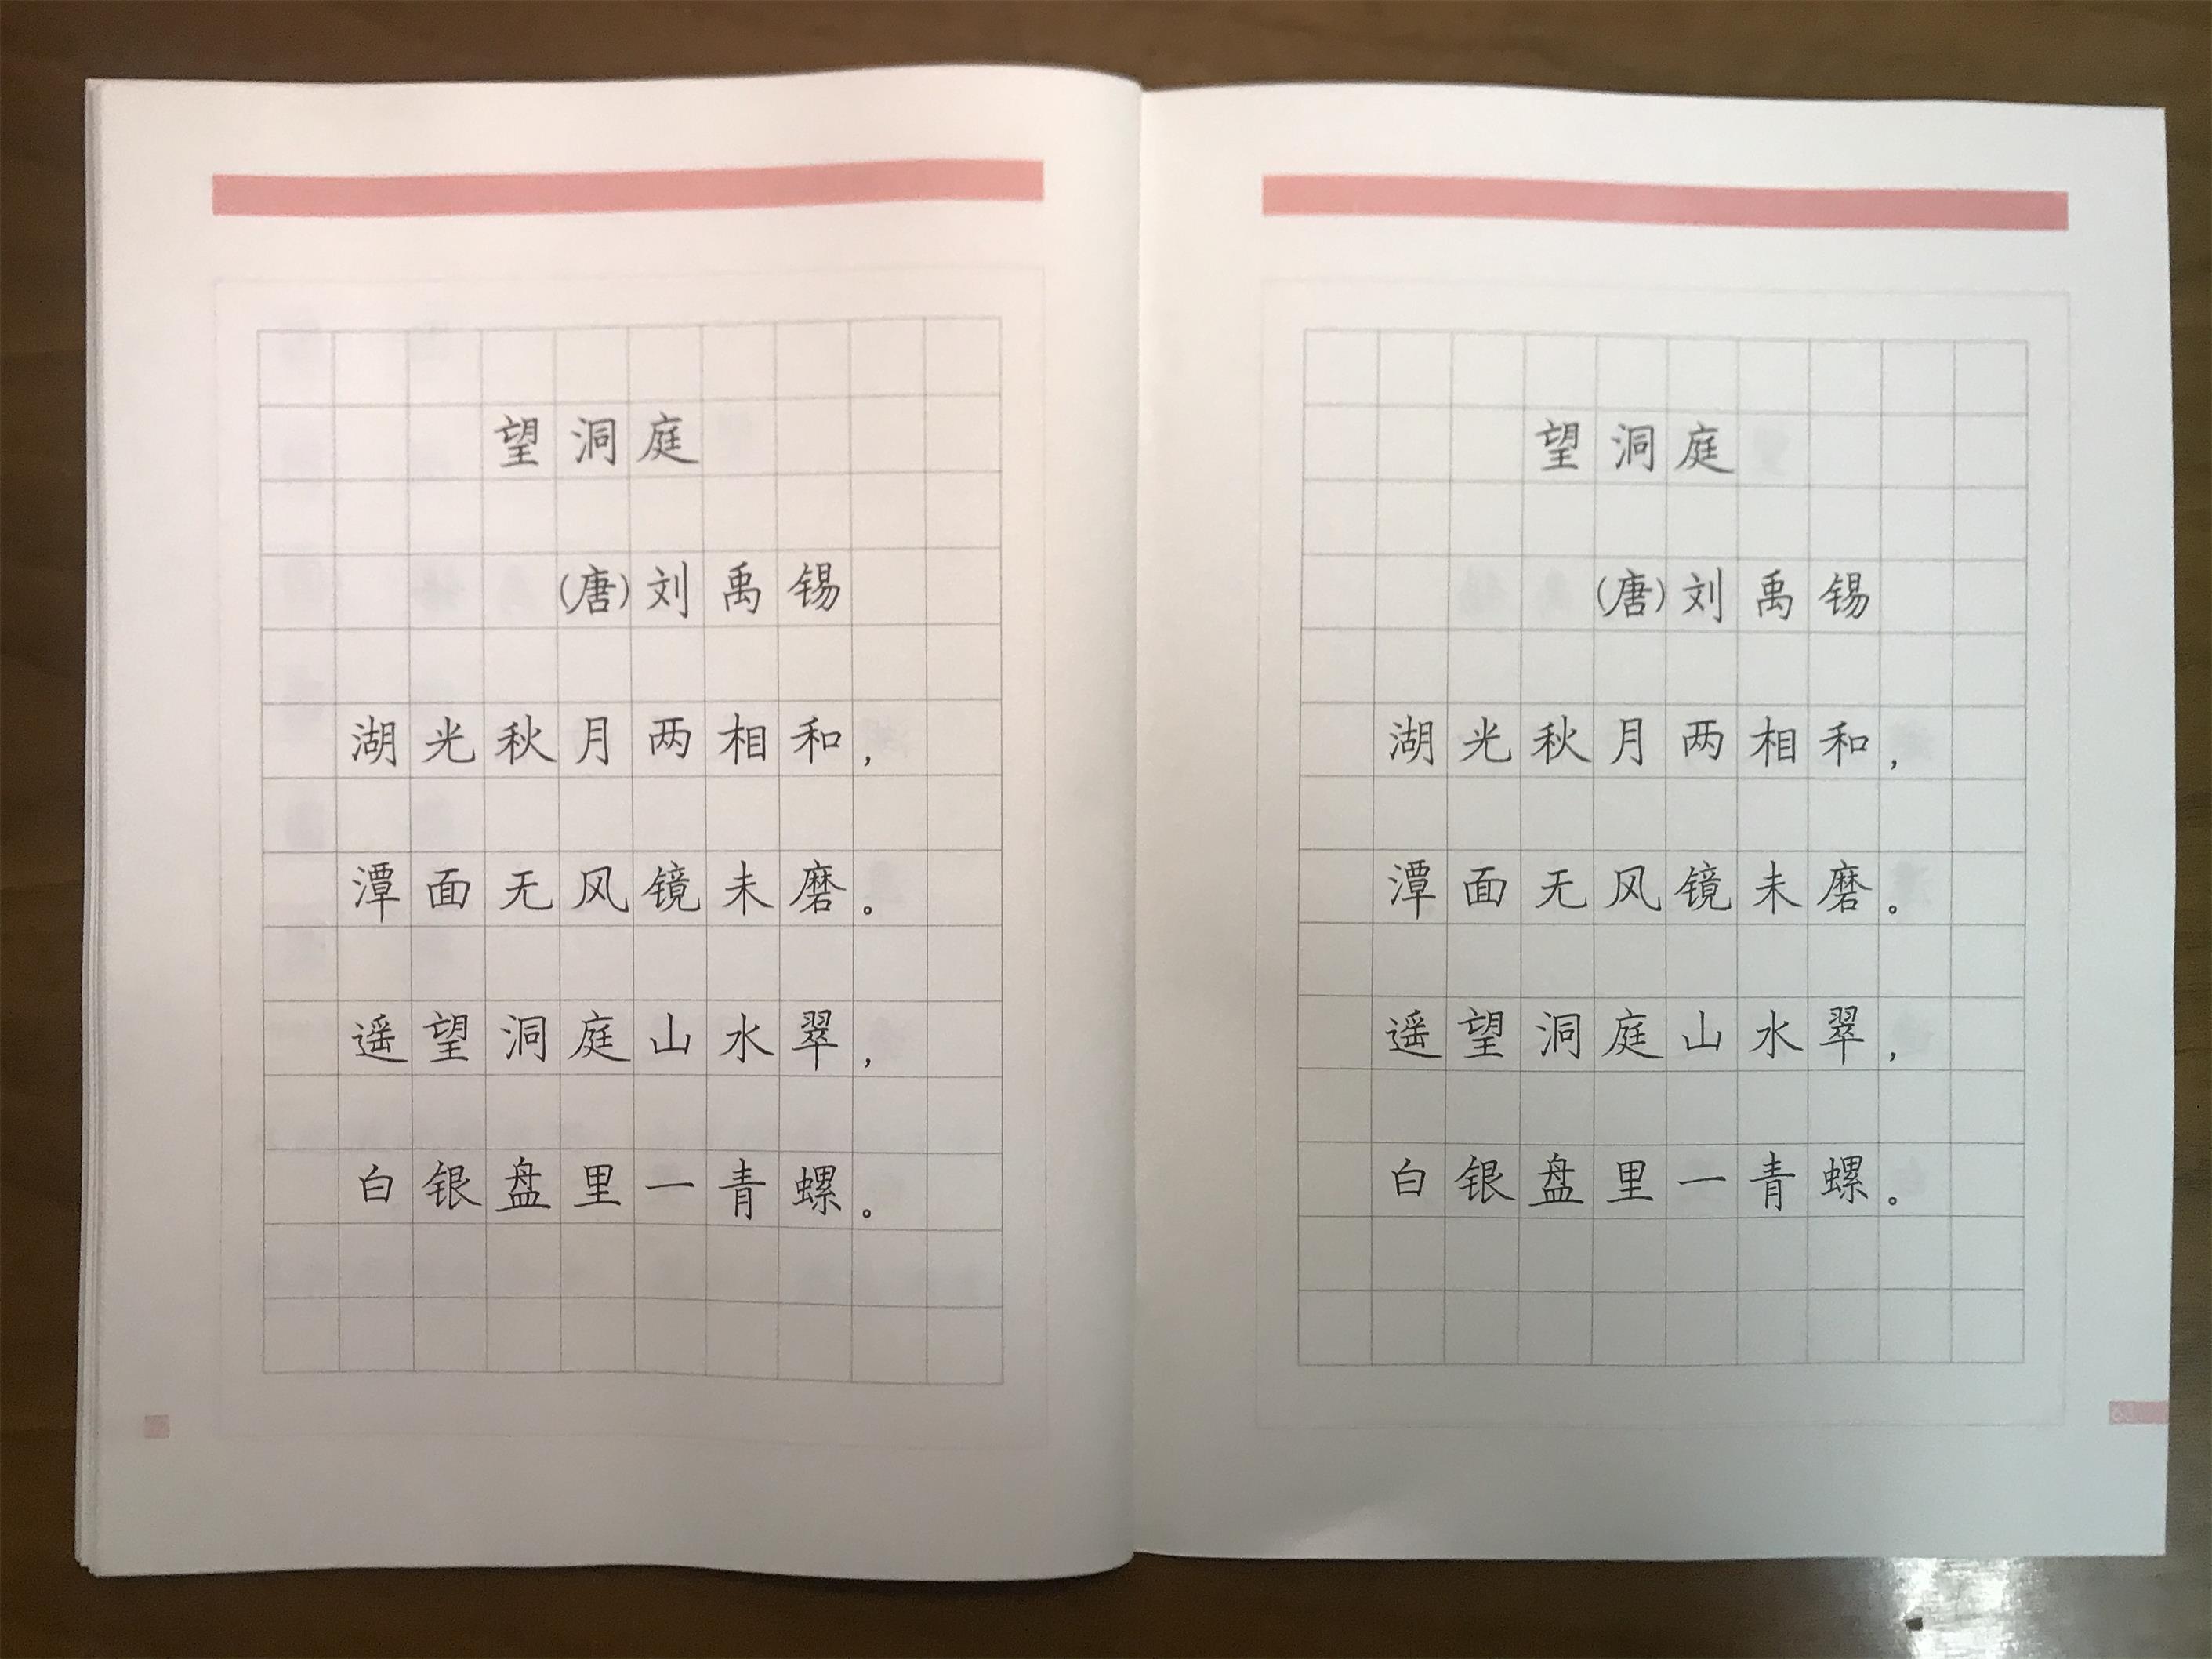 望洞庭
(唐)刘禹锡
湖光秋月两相和,
潭面无风镜未磨。
遥望洞庭山水翠,
白银盘里一青螺。
望洞庭
(唐)刘禹锡
湖光秋月两相和,
潭面无风镜未磨。
遥望洞庭山水翠,
白银盘里一青螺。